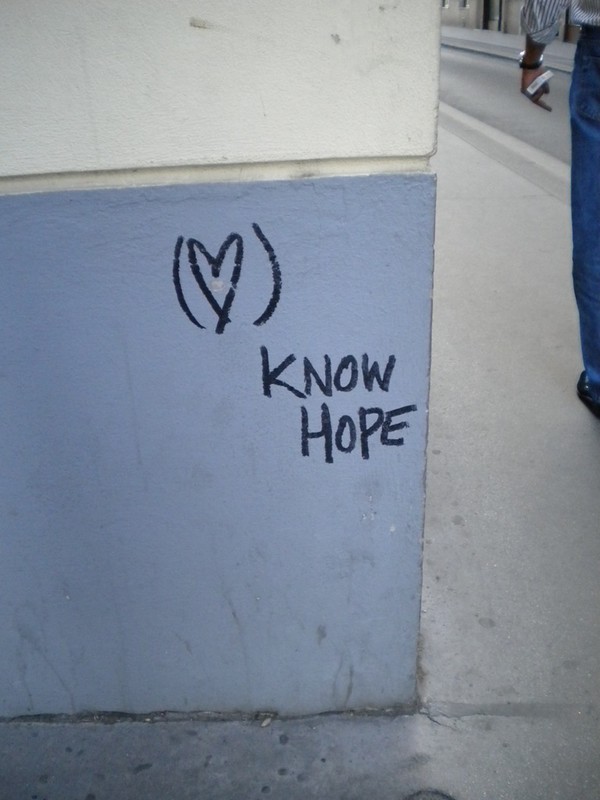 (♡)
KNOW
HOPE